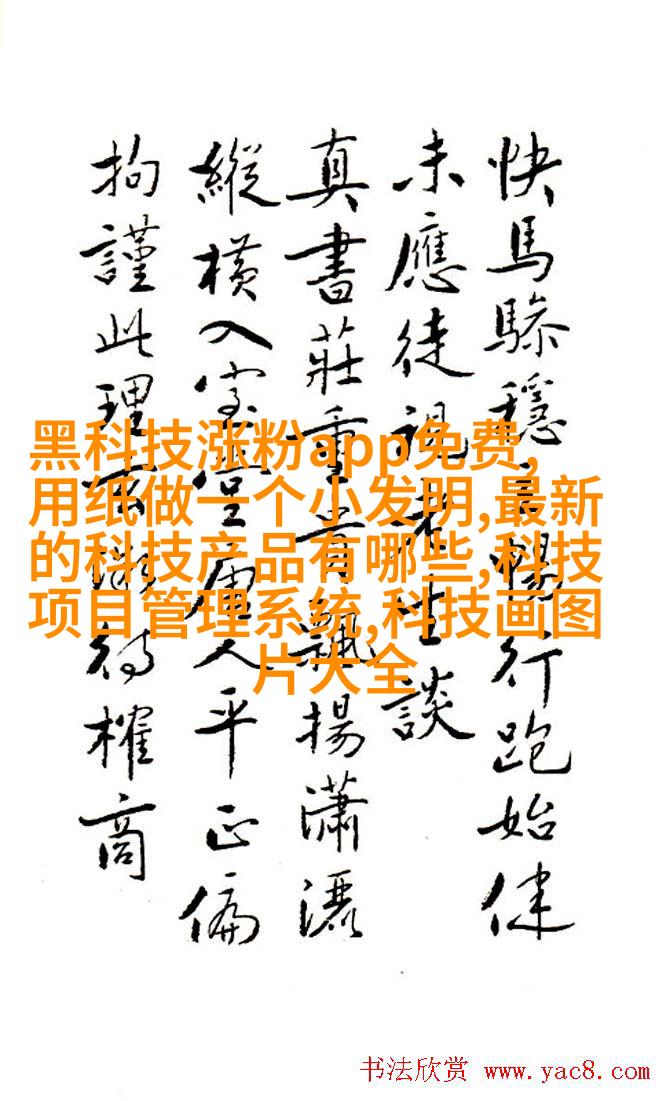 快馬驂穩
行跑始健
未應徒視
談
真書莊重
飄揚瀟灑
縱橫入室
人平正偏
拘謹此理
得權商
黑科技涨粉app免费,
用纸做一个小发明,最新
的科技产品有哪些,科技
项目管理系统,科技画图
片大全
书法欣赏 www.yac8.com